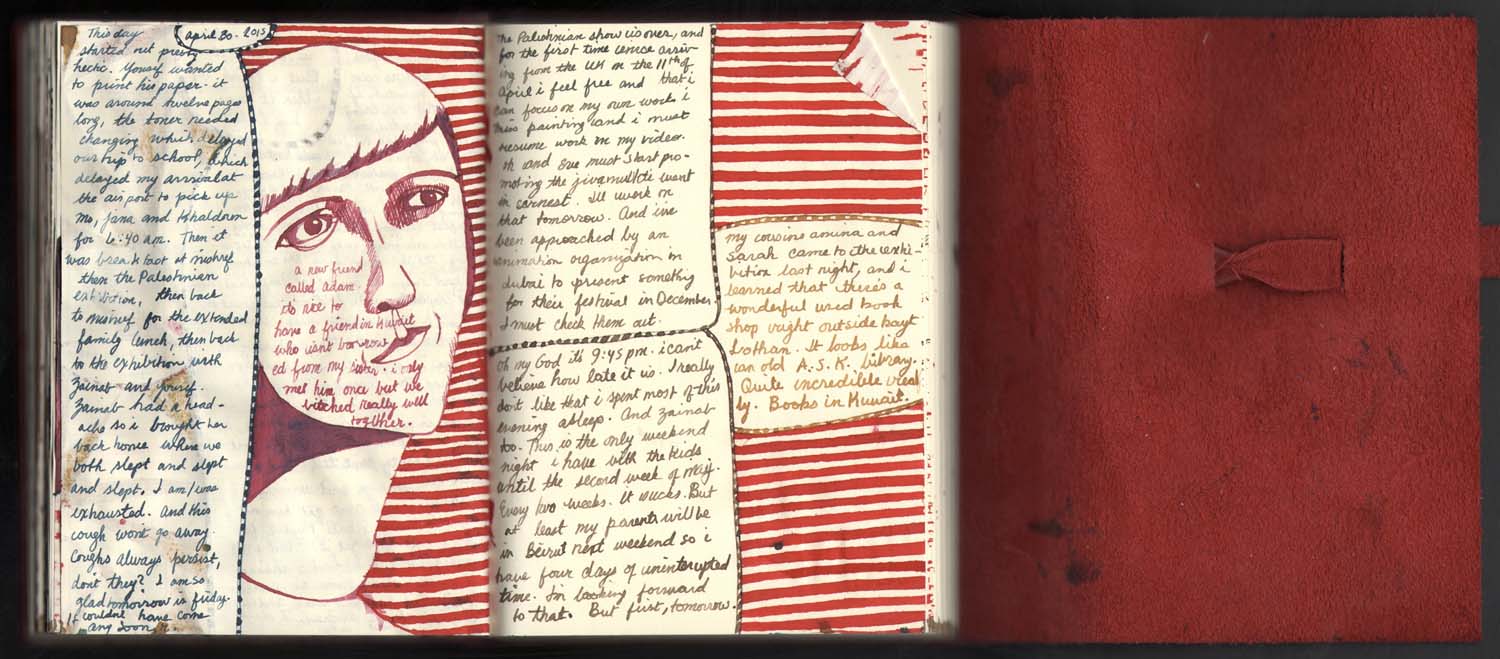 april 30 - 2015
This day
started out pretty
hectic. Yousif wanted
to print his paper. it
was around twelve pages
long, the toner needed
changing which delayed
our trip to school, which
delayed my arrival at
the airport to pick up
mo, Jana and Khaldoon
for 6:40 am. Then it
was breakfast at mishref
then the Palestinian
exhibition, then back
to mishref for the extended
family lunch, then back
to the exhibition with
Zainab and yousif.
Zainab had a head-
ache so i brought her
back home where we
both slept and slept
and slept. I am/was
exhausted. And this
cough wont go away.
Coughs always persist,
dont they? I am so
glad tomorrow is friday.
It couldnt have come
any soon
a new friend
called adam.
its nice to
have a friend in Kuwait
who isnt borrow
ed from my sister. i only
met him once but we
bitched really well
together.
The Palestinian show is over, and
for the first time since arriv-
ing from the UK on the 11th of
April i feel free and that i
can focus on my own work. i
miss painting and i must
resume work on my video.
oh and we must start pro-
moting the jivamukti event
in earnest. Ill work on
that tomorrow. And ive
been approached by an
animation organization in
dubai to present something
for their festival in December.
I must check them out.
Oh my God it's 9:45 pm. i cant
believe how late it is. I really
dont like that i spent most of this
evening asleep. And Zainab
too. This is the only weekend
night i have with the kids
until the second week of may.
Every two weeks. It sucks. But
at least my parents will be
in Beirut next weekend so i
have four days of uninterrupted
time. Im looking forward
to that. But first, tomorrow.
my cousins amina and
Sarah came to the exhi-
bition last night, and i
learned that there's a
wonderful used book
shop right outside bayt
Lothan. It looks like
an old A.S.K. library.
Quite incredible real
ly. Books in Kuwait.